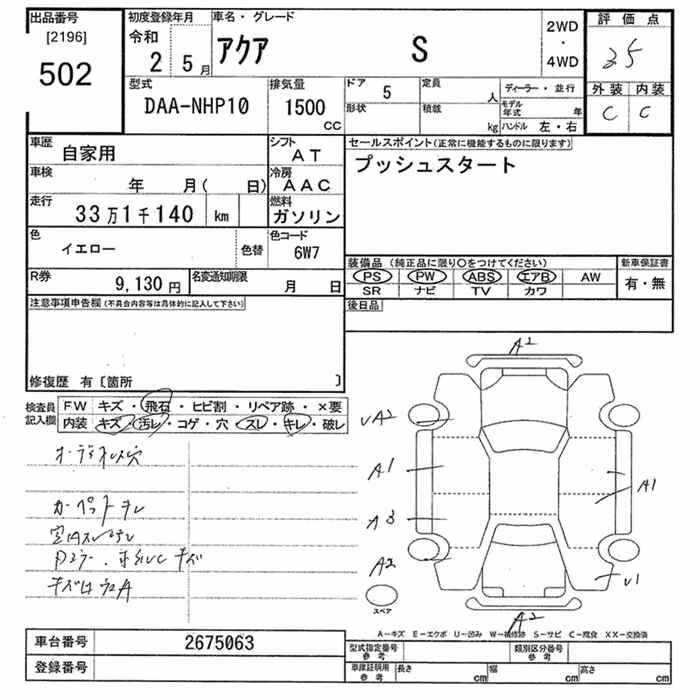 出品番号 初度登録年月 車名・グレード 2WD ・ 4WD 評価点
[2196] 令和
502 2 5月 アクア S 35
外装 内装
C C
型式 排気量 ドア 5 定員 人 ディーラー・並行
DAA-NHP10 1500 CC 形状 積載 kg モデル年式 年
ハンドル 左・右
車歴 自家用 シフト AT セールスポイント(正常に機能するものに限ります)
車検 年 月( 日) 冷房 AAC プッシュスタート
走行 33万1千140 km 燃料 ガソリン
色 イエロー 色替 色コード 6W7
装備品 (純正品に限り○をつけてください) 新車保証書
PS PW ABS エアB AW 有・無
SR ナビ TV カワ
R券 9,130円 名変通知期限 月 日
後日品
注意事項申告欄(不具合内容等は具体的に記入して下さい)
修復歴 有〔箇所 〕
検査員記入欄 FW キズ・飛石・ヒビ割・リペア跡・×要
内装 キズ・汚レ・コゲ・穴・スレ・キレ・破レ
A2
UA2
A1
A1
A3
A2
U1
A2
スペア
カーペットヨレ
A-キズ E-エクボ U-凹み W-補修跡 S-サビ C-腐食 XX-交換済
車台番号 2675063 型式指定番号 参考 類別区分番号 参考
登録番号 車庫証明用 参考 長さ cm 幅 cm 高さ cm